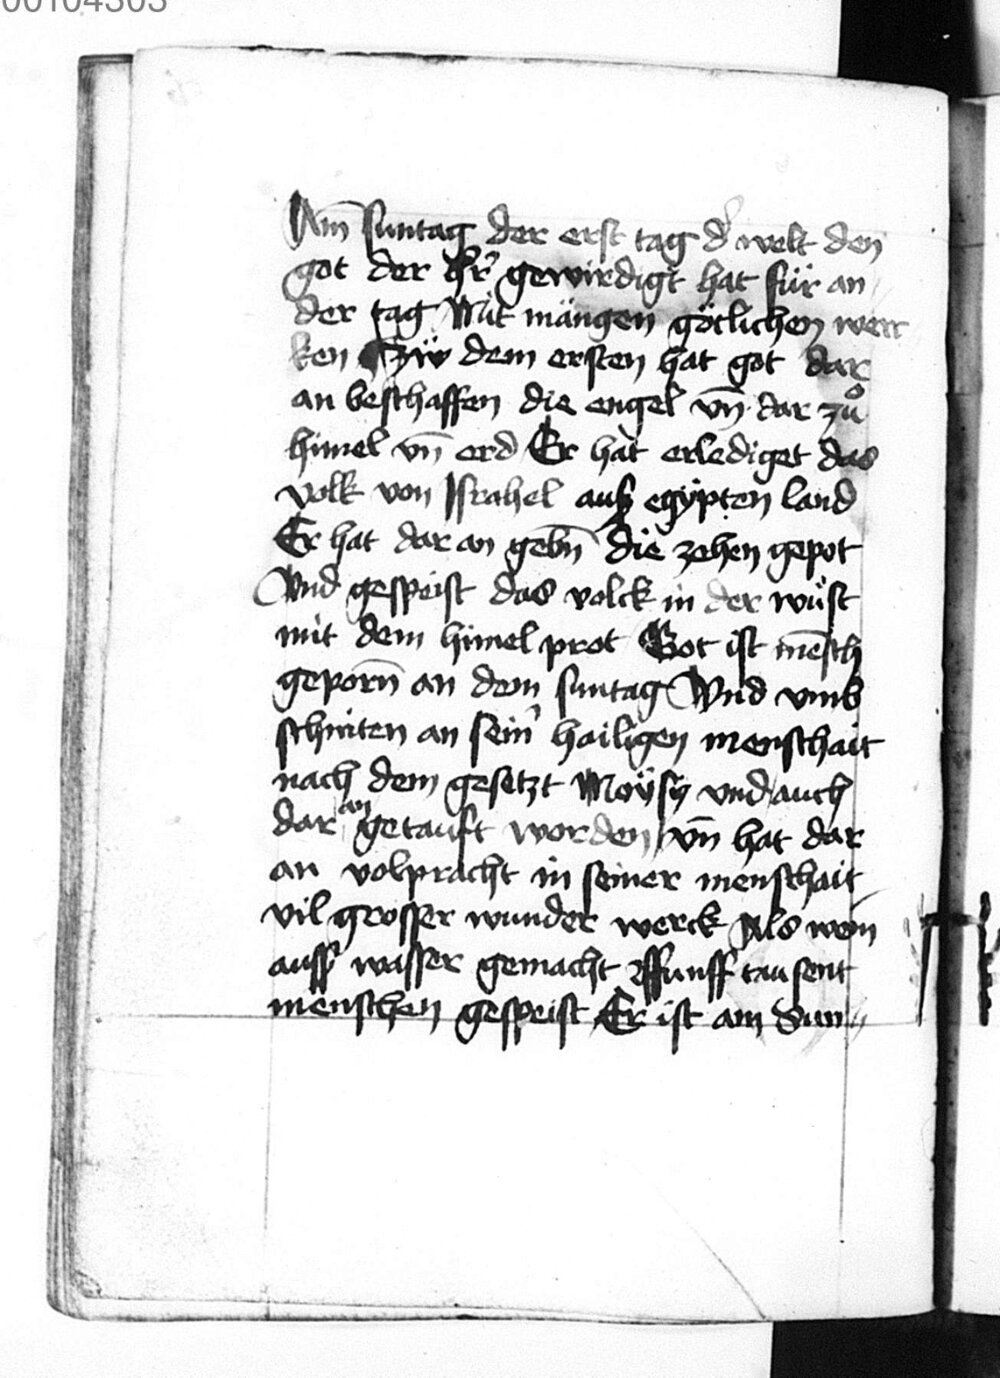 00104303
Am̄ suntag der erst tag d' welt den
got der h'r gewirdigt hat für an
der tag Mit mängen götlichen werc
ken Zw dem ersten hat got dar
an beschaffen die engel vn̄ dar zů
himel vn̄ erd Er hat erlediget das
volk von Israhel auß egÿpten land
Er hat dar an gebn̄ die zehen gepot
Vnd gespeist das volck in der wüst
mit dem himel prot Got ist mēsch
geporn̄ an dem suntag Vnd vmb
schniten an sein' hailigen menschait
nach dem gesetzt Moÿsÿ vnd auch
dar an getauft worden vn̄ hat dar
an volpracht in seiner menschait
vil grosser wunder werck Als wein
auss wasser gemacht ffunff tausent
menschen gespeist Er ist am Sun